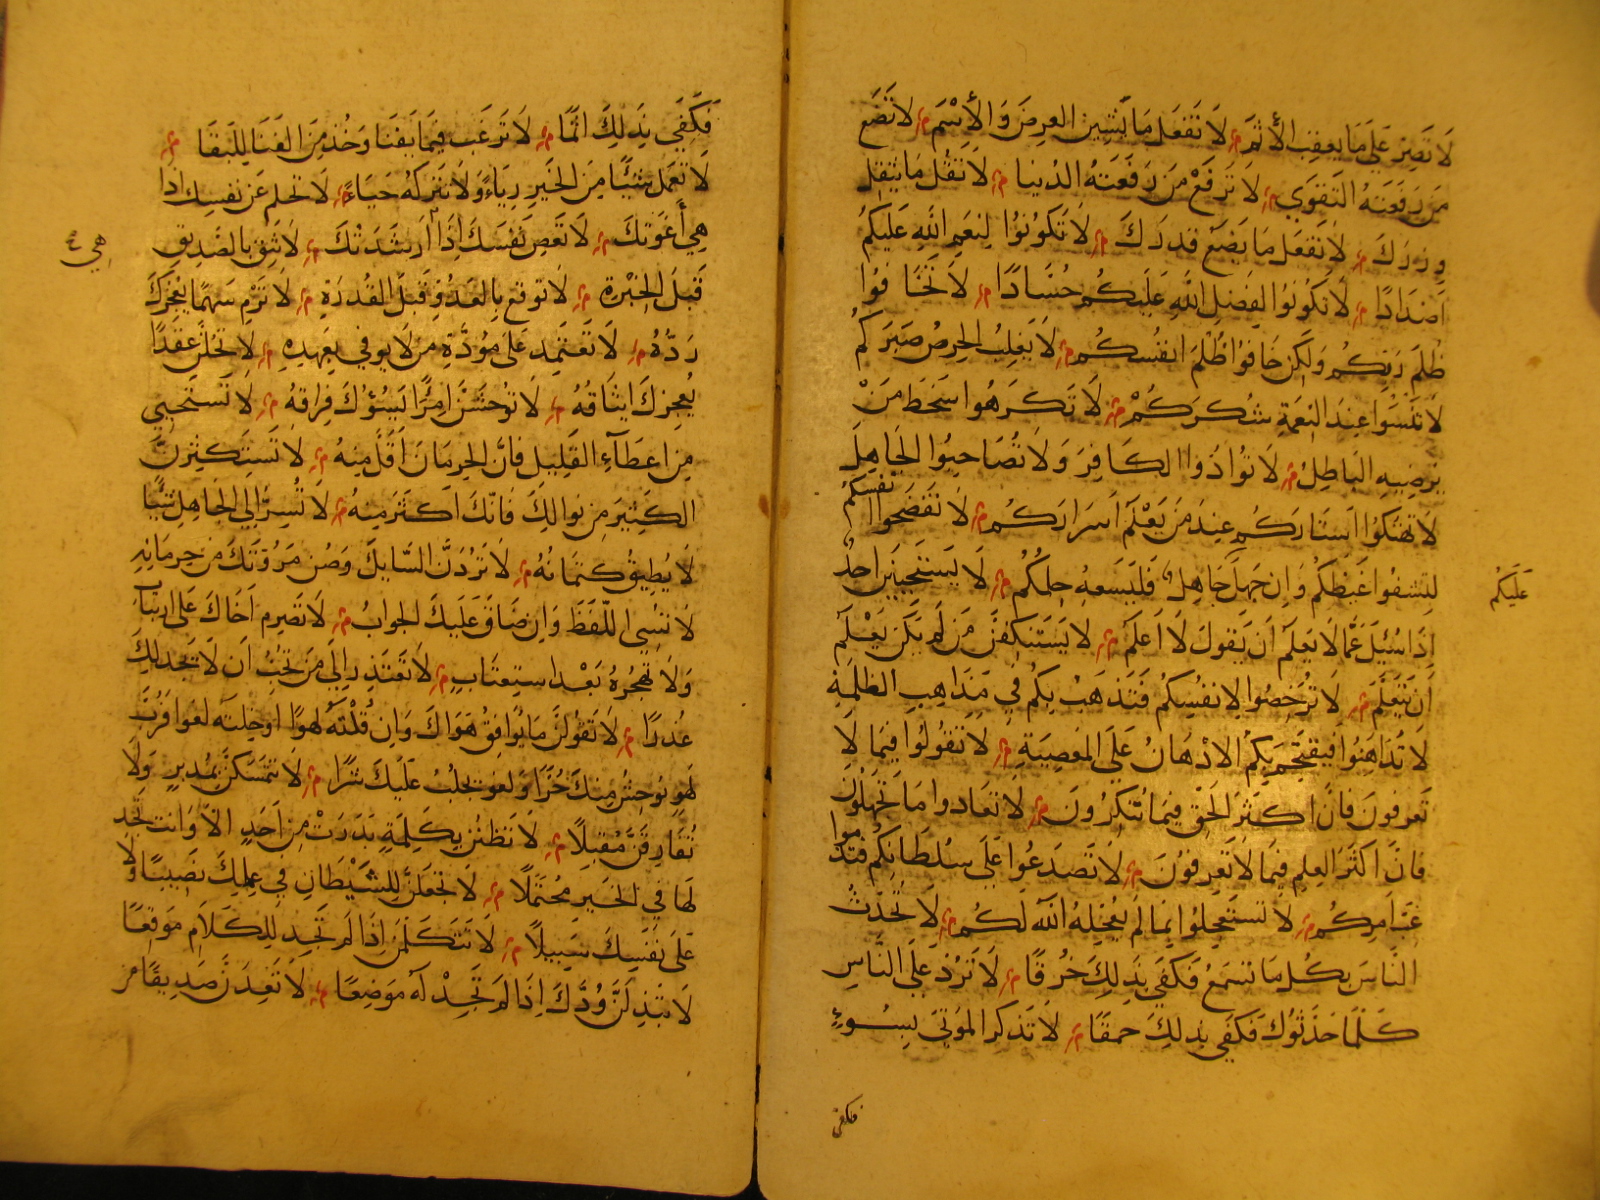 لَا تَصْبِرْ عَلَى مَا يعقب الْأَثَمَ ۞ لَا تَفْعَلْ مَا يَشِينُ العِرضَ وَالْأِسْمَ ۞ لَا تَضَع
مَنْ رَفَعَتْهُ التَقوَى ۞ لَا تَرْفَعْ مَنْ رَفَعَتْهُ الدُنيا ۞ لَا تَقُلْ مَا يُثقِلُ
وِزرَكَ ۞ لَا تَفعَل مَا يَضَعْ قَدرَكَ ۞ لَا تَكُونُوا لِنِعَمِ اللّهِ عَلَيكُم
اَضدَادًا ۞ لَا تَكُونُوا لِفَضلِ اللّهِ عَلَيكُم حُسَّادًا ۞ لَا تَخَافُوا
ظُلمَ رَبِّكُم وَلكِن خَافُوا ظُلمَ انفُسِكُم ۞ لَا يَغلِبُ الحِرصُ صَبرَكُم
لَا تَنسَوا عِندَ النِعمَةِ شُكرَكُمْ ۞ لَا تَكرَهُوا سَخَطَ مَنْ
يُرضِيهِ البَاطِلُ ۞ لَا تُوَادُّوا الكَافِرَ وَلَا تُصَاحِبُوا الجَاهِلَ
لَا تَهتِكُوا اَستَارَكُم عِندَ مَن يَعْلَم اَسرَارَكُم ۞ لَا تَفضَحُوا انفُسَكُم
لِتشفُوا غَيظَكُم وَاِن جَهِلَ جَاهِلٌ فَليَسَعهِ حِلمُكُم ۞ لَا يَستَحيِيَنَّ اَحَدٌ
عَلَيكُم
اِذَا سُئِلَ عَمَّا لَا يَعلَم اَن يَقولَ لَا اَعلَم ۞ لَا يَستَنكِفَنَّ مَن لَم يَكُن يَعْلَم
اَن يَتَعَلَّمَ ۞ لَا تُرَخِّصُوا لِانفُسِكُم فَتَذهَبَ بِكُم فِي مَذَاهِبِ الظَلَمَةِ
لَا تُدَاهِنُوا فَيَقتَحِمَ بِكُمُ الاِدْهَانُ عَلَى المَعصِيَةِ ۞ لَا تَقُولُوا فِيمَا لَا
تَعرِفونَ فَاِنَّ اَكثَرَ الحَقِّ فِيمَا تُنكِرُونَ ۞ لَا تُعَادوا مَا تَجهَلُونَ
فَاِنَّ اَكثَرَ العِلمِ فِيمَا لَا تَعرِفُونَ ۞ لَا تَصدَعُوا عَلَى سُلطَانِكُم فَتَذُموا
غِبَّ اَمرِكُم ۞ لَا تَستَعجِلُوا بِمَا لَم يُعَجِّلهُ اللّهُ لَكُم ۞ لَا تُحَدِّثِ
النَّاسَ بِكُلِّ مَا تَسمَعُ فَكَفَى بِذَلِكَ خُرقًا ۞ لَا تَرُدَّ عَلَى النَّاسِ
كُلَّمَا حَدَّثُوكَ فَكَفَى بِذلِكَ حمقًا ۞ لَا تَذكُرِ المَوتَى بِسُوءٍ
فكفى
فَكَفَى بِذَلِكَ اثمًا ۞ لَا تَرغَب فِيمَا يَفنَا وَخُذ مِنَ الفَنَا لِلبَقَا ۞
لَا تَعمَل شَيئًا مِنَ الخَيرِ رِيَاءً وَلَا تَترُكهُ حَيَاءً ۞ لَا تَحلم عَن نَفسِكَ اِذَا
هِيَ أَغوَتكَ ۞ لَا تَعصِ نَفسَكَ اِذَا اَرشَدَتكَ ۞ لَا تَثِق بِالصَدِيقِ
هي
قَبلَ الخِبْرَةِ ۞ لَا تُوقع بِالعَدُوِّ قَبلَ القُدرَةِ ۞ لَا تَرْمِ سَهمًا يُعجِزكَ
رَدُّهُ ۞ لَا تَعتَمِد عَلَى مَوَدَّةِ مَن لَا يوفي بِعَهدِهِ ۞ لَا تَحُلَّنَّ عَقدًا
يُعجِزكَ ايثَاقُهُ ۞ لَا تُوحِشَنَّ امرًا يَسُؤُكَ فِرَاقهُ ۞ لَا تَستَحيِي
مِن اِعطَاءِ القَلِيلِ فَاِنَّ الحِرمَانَ اَقَلُّ مِنهُ ۞ لَا تَستَكثِرَنَّ
الكَثِيرَ مِن نَوالِكَ فَاِنَّكَ اَكثَرُ مِنهُ ۞ لَا تُسِرَّ اِلَى الجَاهِلِ شَيئًا
لَا يُطِيقُ كِتمَانهُ ۞ لَا تَرُدَّنَّ السَّايِلَ وَصُن مُرُوَّتَكَ مِن حِرمَانِهِ
لَا تُسِئ اللَّفظَ وَاِن ضَاقَ عَلَيكَ الجَوابُ ۞ لَا تَصرِم اَخَاكَ عَلَى ارتِيَابٍ
وَلَا تَهجُرهُ بَعْدَ استِعتَابٍ ۞ لَا تَعتَذِر اِلَى مَن تُحِبُّ اَن لَا تَجِدَ لَكَ
عُذرًا ۞ لَا تَقُولَنَّ مَا يُوَافِقُ هَوَاكَ وَاِن قُلْتَهُ لَهوًا اَو خِلتَهُ لَغوا فَرُبَّ
لَهوٍ يُوحِشُ مِنكَ حُرًّا وَلَغوٍ يجلُبُ عَلَيكَ شَرًّا ۞ لَا تَتَمَسَّكَنَّ بِمُدبِرٍ وَلَا
تُفَارِقَنَّ مُقبِلًا ۞ لَا تَظُنَّنَّ بِكَلِمَةٍ بَدَرَتْ مِن اَحَدٍ الَّا وَانتَ تَجِد
لَهَا فِي الخَيرِ مُحتَمَلًا ۞ لَا تَجعَلَنَّ لِلشَيْطَانِ فِي عَمَلِكَ نَصِيبًا وَلَا
عَلَى نَفسِكَ سَبِيلًا ۞ لَا تَتَكَلَّمَنَّ اِذَا لَم تَجِد لِلكَلَامِ مَوقِعًا
لَا تَبذِلَنَّ وُدَّكَ اِذَا لَم تَجِدْ لَهُ مَوضِعًا ۞ لَا تَعِدَنَّ صَدِيقًا من